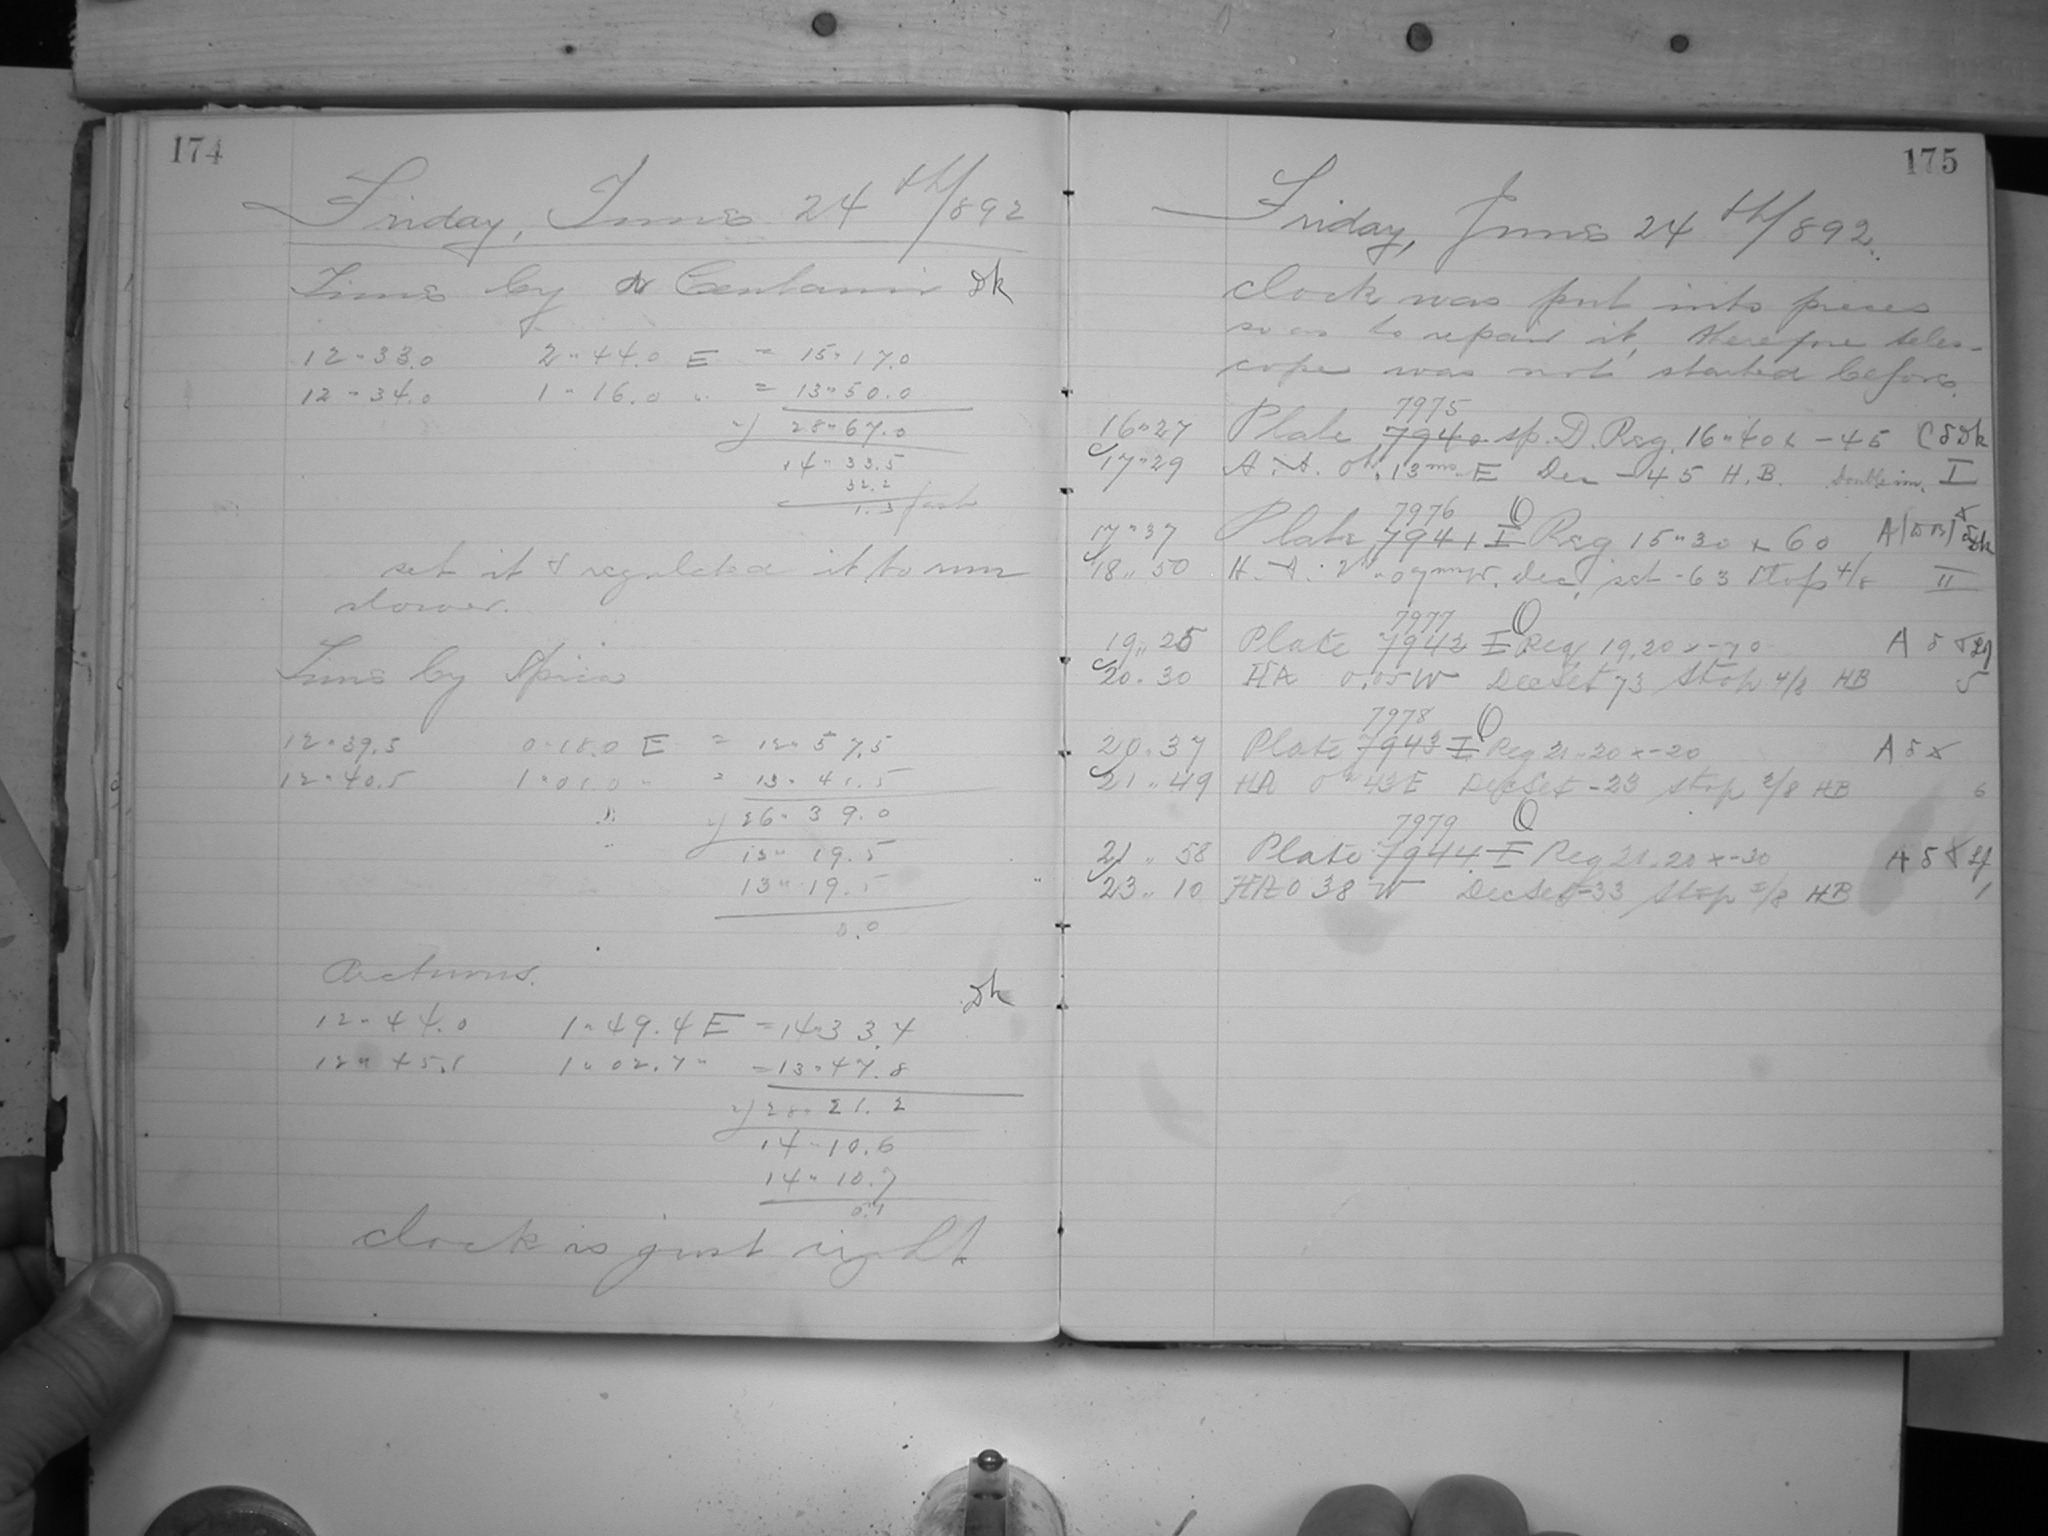 174
Friday, June 24th/892
Time by α Centauri Dk
12 " 33.0 2 " 44.0 E = 15 " 17.0
12 " 34.0 1 " 16.0 " = 13 " 50.0
2) 28 " 67.0
14 " 33.5
32.2
1.3 fast
set it & regulated it to run
slower.
Time by Spica
12 " 39.5 0 " 18.0 E = 12 " 57.5
12 " 40.5 1 " 01.0 " = 13 " 41.5
2) 26 " 39.0
13 " 19.5
13 " 19.5
0.0
Arcturus. Dk
12 " 44.0 1 " 49.4 E = 14 " 33.4
12 " 45.1 1 " 02.7 " = 13 " 47.8
2) 28 " 21.2
14 " 10.6
14 " 10.7
0.1
clock is just right
175
Friday, June 24th/892.
clock was put into pieces
so as to repair it, therefore teles-
cope was not started before.
7975
16 " 27 Plate 7940 sp. D. Reg. 16 " 40 x -45 C δ Dk
17 " 29 H. A. 0h. 13m E Dec -45 H. B. Double im. I
7976 O
17 " 37 Plate 7941 I Reg 15 " 30 x 60
18 " 50 H. A. 2 " 09m W. Dec. set -63 Stop 4/8 II
7977 O
19 " 25 Plate 7942 I Reg 19.20 x -70 A δ
20 " 30 HA 0.05 W Dec Set 73 Stop 4/8 HB 5
7978 O
20 " 37 Plate 7943 I Reg 21 " 20 x -20 A δ x
21 " 49 HA 0h 43 E Dec Set -23 Stop 2/8 HB 6
7979 O
21 " 58 Plate 7944 I Reg 21.20 x -30 A δ
23 " 10 HA 0 38 W Dec Set -33 Stop 2/8 HB 1